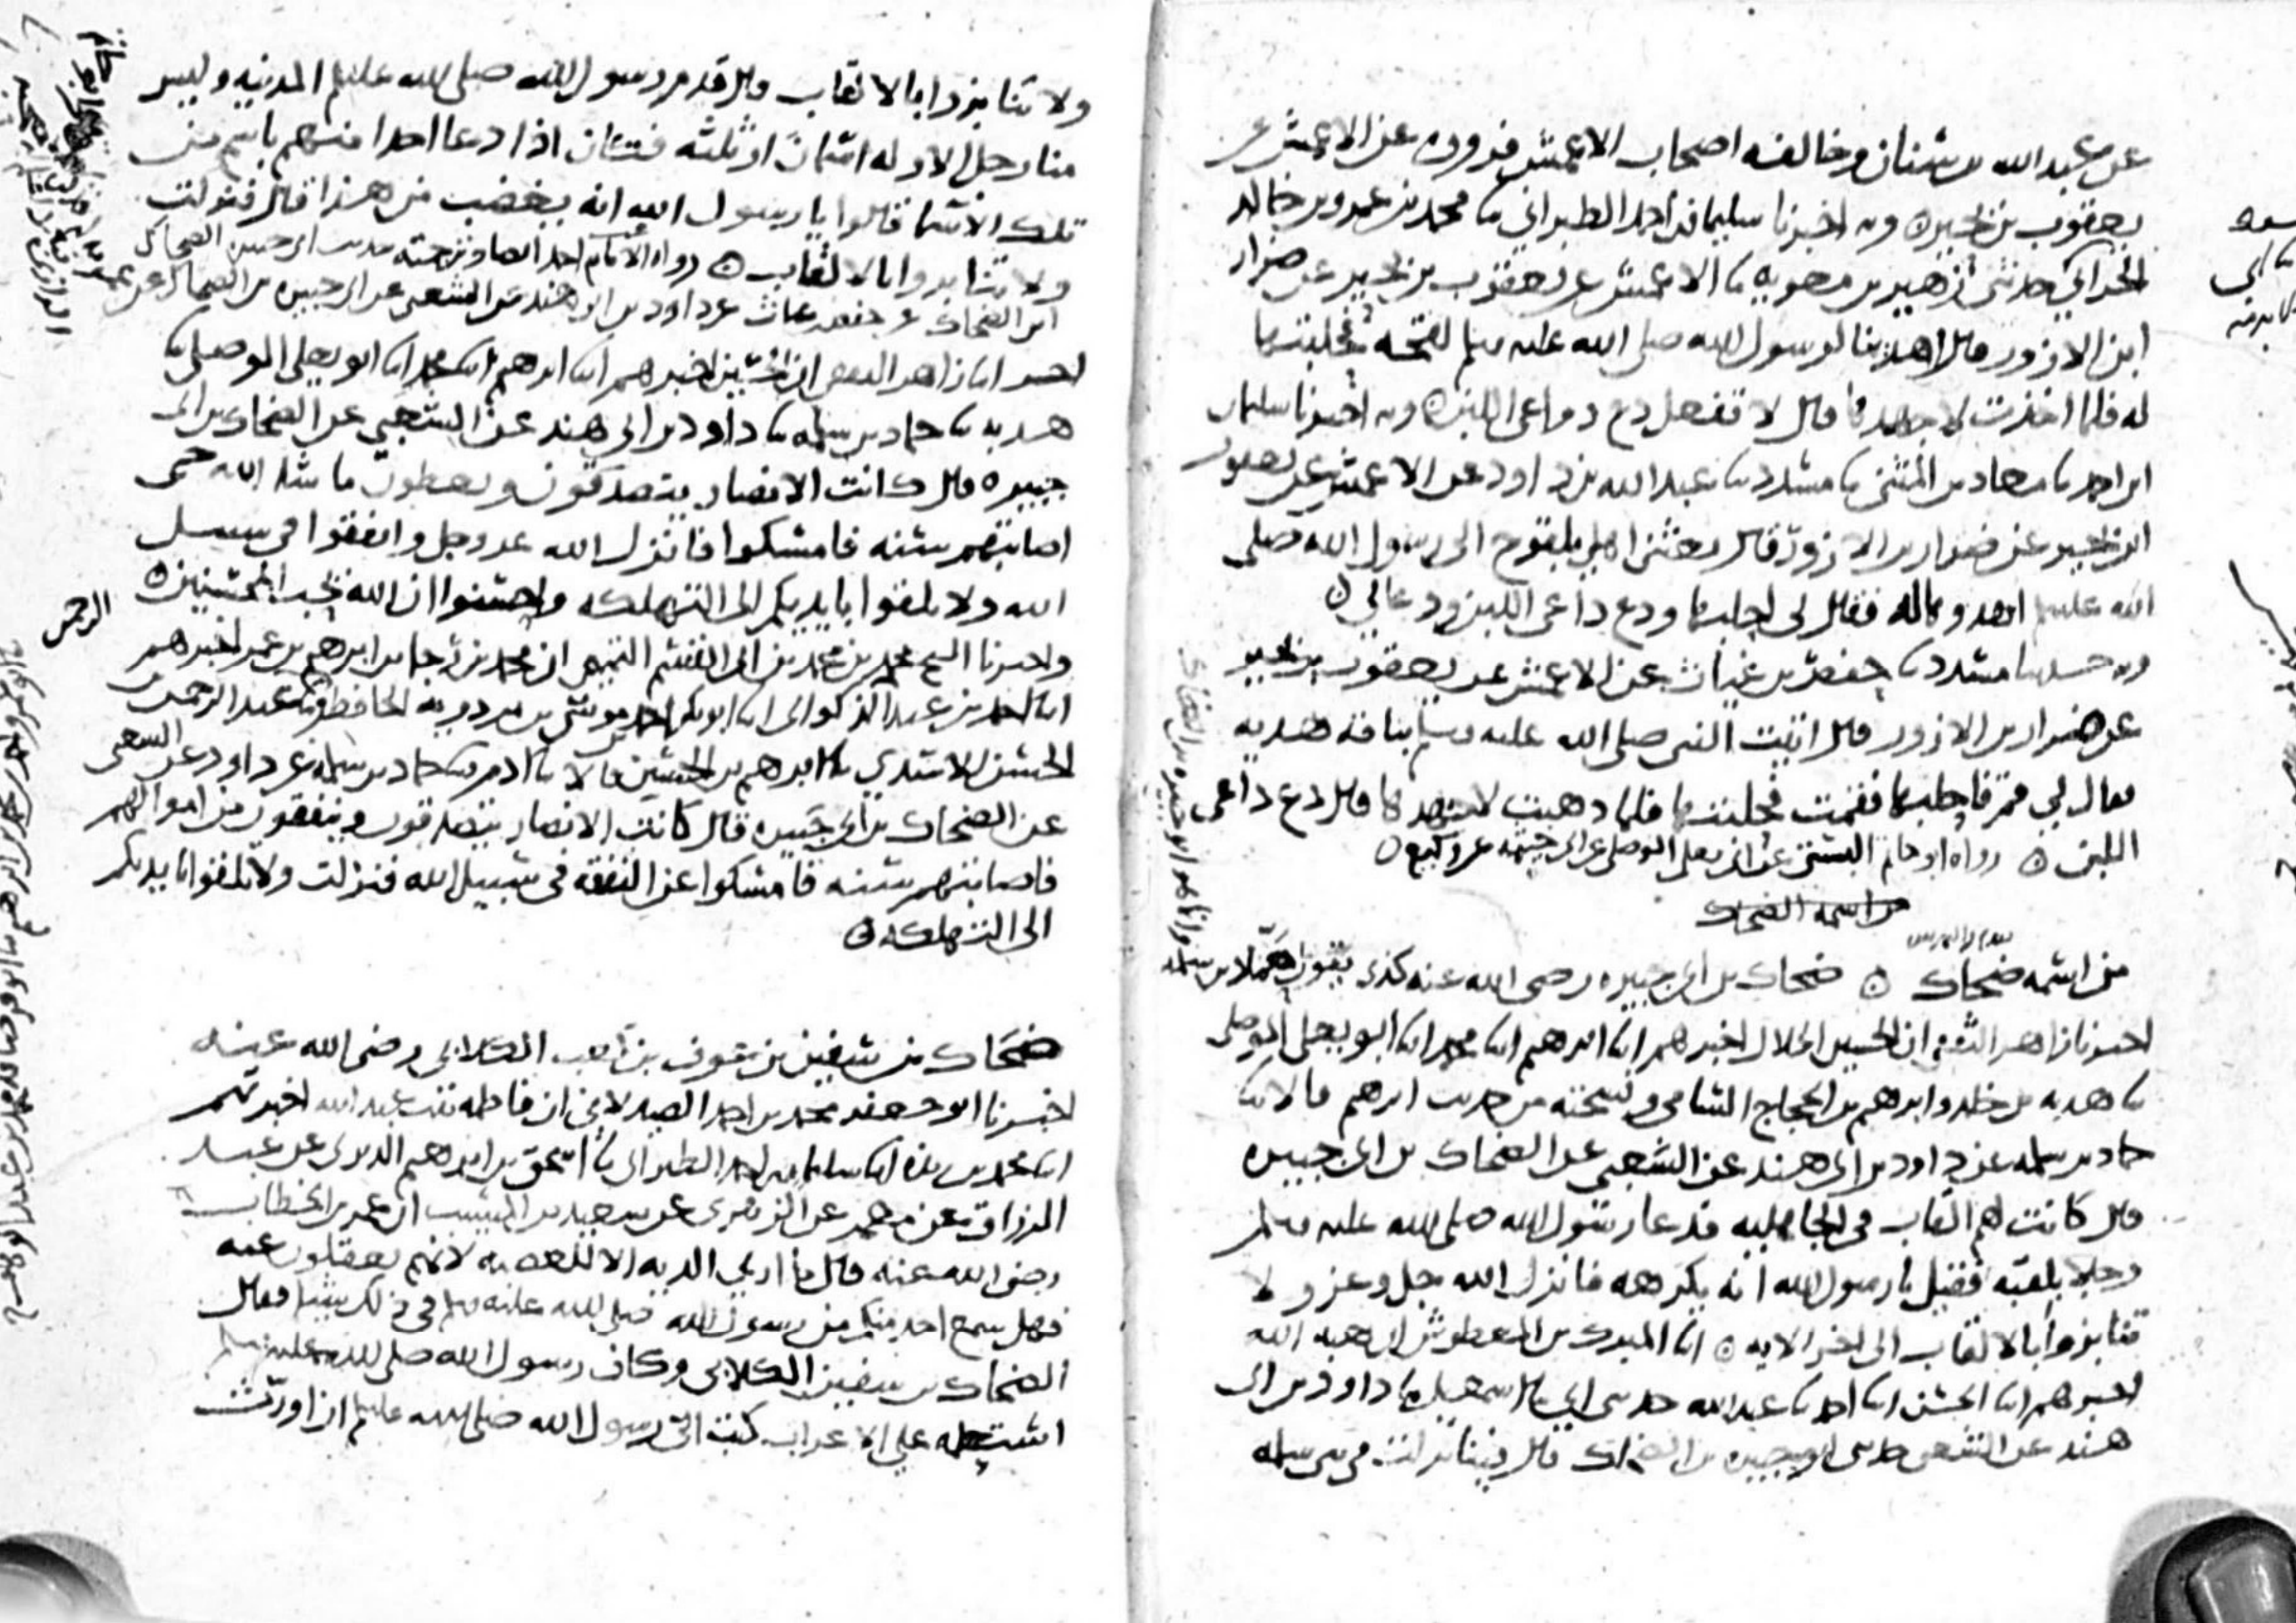 عن عبد الله بن سنان وخالفه اصحاب الاعمش فرووه عن الاعمش عن
يعقوب بن بحير ٥ وبه اخبرنا سليمان بن احمد الطبراني ثنا محمد بن عمرو بن خالد
الحراني حدثني ابي ثنا زهير بن معويه ثنا الاعمش عن يعقوب بن بحير عن ضرار
ابن الازور قال اهدينا لرسول الله صلى الله عليه وسلم لقحة فحلبتها
له فلما اخذت لاجهدها قال لا تفعل دع دواعي اللبن ٥ وبه اخبرنا سليمان
ابن احمد ثنا معاذ بن المثنى ثنا مسدد ثنا عبد الله بن داود عن الاعمش عن يعقوب
ابن بحير عن ضرار بن الازور قال بعثني اهلي بلقوح الى رسول الله صلى
الله عليه وسلم فقال لي احلبها ودع داعي اللبن ٥
وبه ثنا مسدد ثنا حفص بن غياث عن الاعمش عن يعقوب بن بحير
عن ضرار بن الازور قال اتيت النبي صلى الله عليه وسلم بناقة هدية
فقال لي قم فاحلبها فقمت فحلبتها فلما ذهبت لاجهدها قال دع داعي
اللبن ٥ رواه ابو حاتم البستي عن ابي يعلى الموصلي عن ابي خيثمه عن وكيع ٥
من اسمه الضحاك
من اسمه ضحاك ٥ ضحاك بن ابي جبيره رضي الله عنه كذى يقول حماد بن سلمه
اخبرنا زاهر الثقفي ان الحسين الخلال اخبرهم ابنا ابرهيم ابنا محمد ابنا ابو يعلى الموصلي
ثنا هدبه بن خالد وابرهيم بن الحجاج الشامي ونسخته من حديث ابرهيم قالا ثنا
حماد بن سلمه عن داود بن ابي هند عن الشعبي عن الضحاك بن ابي جبيره
قال كانت لهم القاب في الجاهليه فدعا رسول الله صلى الله عليه وسلم
رجلا بلقبه فقيل يا رسول الله انه يكرهه فانزل الله جل وعز ولا
تنابزوا بالالقاب الى اخر الايه ٥ ابنا المبرك بن المعطوش ان هبه الله
اخبرهم ابنا الحسن ابنا احمد ثنا عبد الله حدثني ابي ثنا اسمعيل ثنا داود بن ابي
هند عن الشعبي حدثني ابو جبيره بن الضحاك قال فينا نزلت في بني سلمه
ولا تنابزوا بالالقاب قال قدم رسول الله صلى الله عليه وسلم المدينه وليس
منا رجل الا وله اسمان او ثلثه فكان اذا دعا احدا منهم باسم من
تلك الاسما قالوا يا رسول الله انه يغضب من هذا قال فنزلت
ولا تنابزوا بالالقاب ٥ رواه الامام احمد ايضا
عن حفص بن غياث عن داود بن ابي هند عن الشعبي عن ابي جبيره بن الضحاك عن
اخبرنا زاهر الثقفي ان الحسين اخبرهم ابنا ابرهيم ابنا محمد ابنا ابو يعلى الموصلي ثنا
هدبه ثنا حماد بن سلمه ثنا داود بن ابي هند عن الشعبي عن الضحاك بن ابي
جبيره قال كانت الانصار يتصدقون ويعطون ما شا الله حتى
اصابتهم سنه فامسكوا فانزل الله عز وجل وانفقوا في سبيل
الله ولا تلقوا بايديكم الى التهلكه واحسنوا ان الله يحب المحسنين ٥
واخبرنا محمد بن محمد بن ابي القسم التميمي ان محمد بن رجا بن ابرهيم بن عمر اخبرهم
ابنا احمد بن عبد الرحمن الذكواني ابنا ابو بكر احمد بن موسى بن مردويه الحافظ ثنا عبد الرحمن بن
الحسن الاسدي ثنا ابرهيم بن الحسين قالا ثنا ادم ثنا حماد بن سلمه عن داود عن الشعبي
عن الضحاك بن ابي جبيره قال كانت الانصار يتصدقون وينفقون من اموالهم
فاصابتهم سنه فامسكوا عن النفقه في سبيل الله فنزلت ولا تلقوا بايديكم
الى التهلكه ٥
ضحاك بن سفين بن عوف بن كعب الكلابي رضي الله عنه
اخبرنا ابو جعفر محمد بن احمد الصيدلاني ان فاطمه بنت عبد الله اخبرتهم
ابنا محمد بن ريذه ابنا سليمان بن احمد الطبراني ثنا اسحق بن ابرهيم الدبري عن عبد
الرزاق عن معمر عن الزهري عن سعيد بن المسيب ان عمر بن الخطاب
رضي الله عنه قال ما ارى الديه الا للعصبه لانهم يعقلون عنه
فهل سمع احد منكم من رسول الله صلى الله عليه وسلم في ذلك شيئا فقال
الضحاك بن سفين الكلابي وكان رسول الله صلى الله عليه وسلم
استعمله على الاعراب كتب الي رسول الله صلى الله عليه وسلم ان اورث